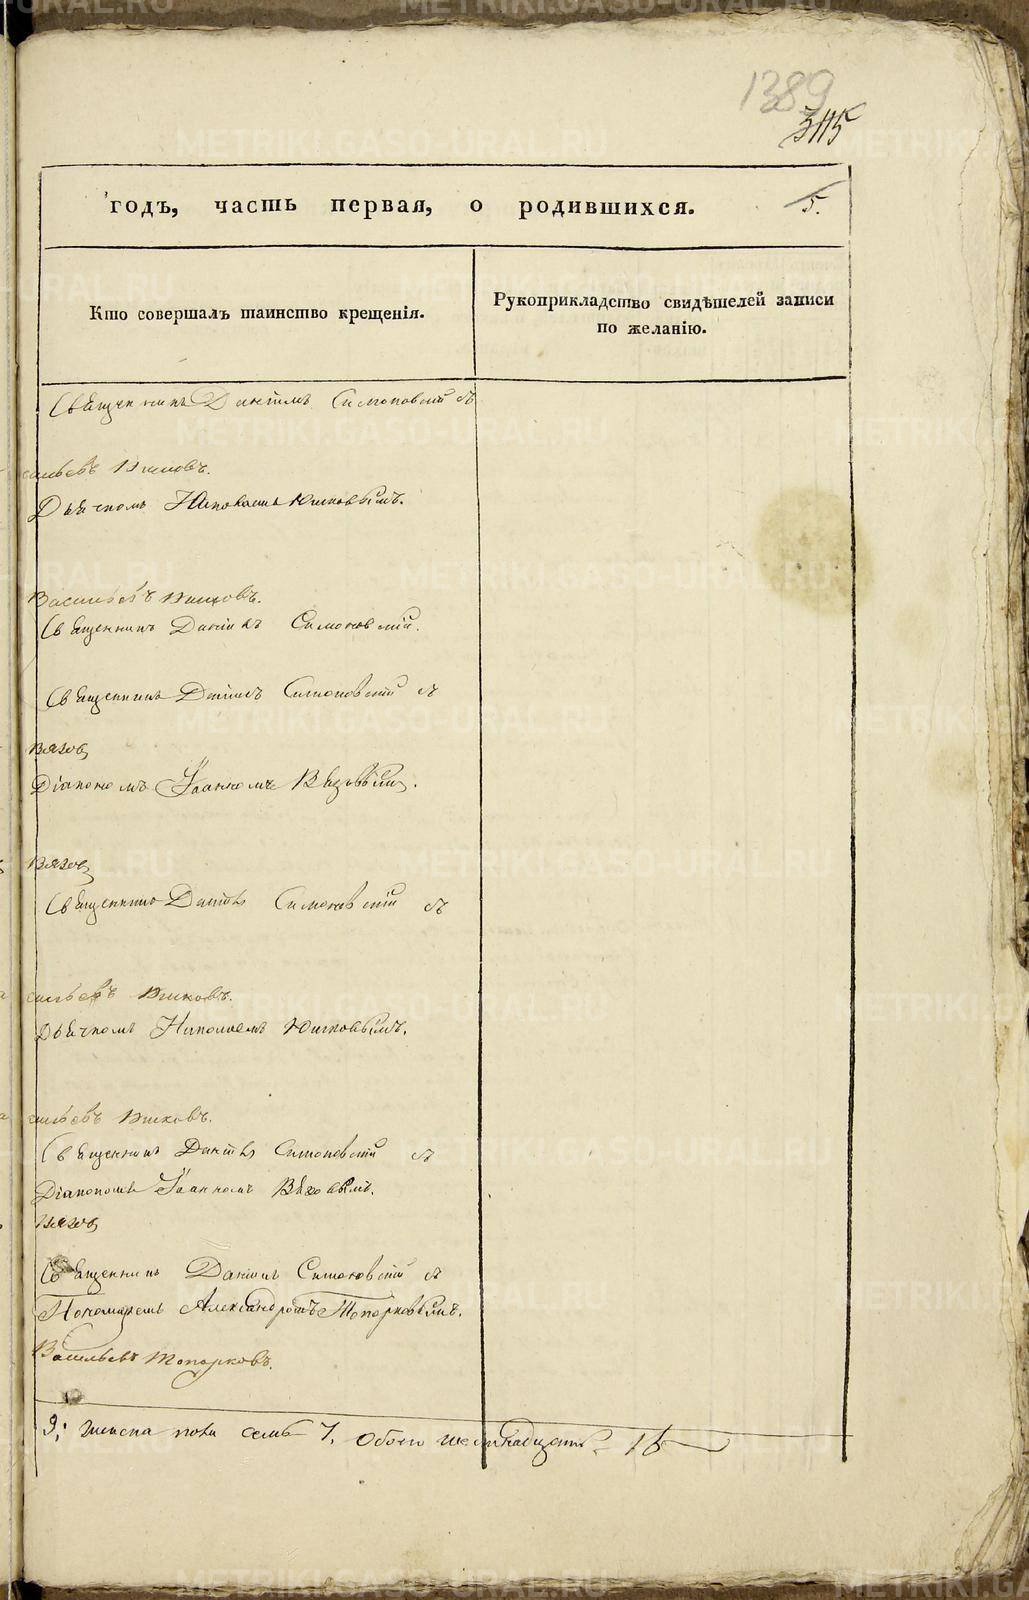 1389
3115
годъ, часть первая, о родившихся.
5.
Кто совершалъ таинство крещенія.
Рукоприкладство свидѣтелей записи
по желанію.
Священникъ Даніилъ Симоновскій съ
Дьячкомъ Николаемъ
Васильевъ
Священникъ Даніилъ Симоновскій.
Священникъ Даніилъ Симоновскій съ
Вязов
Діакономъ Іоанномъ Вязовымъ.
Вязов
Священникъ Даніилъ Симоновскій съ
сильевъ
Дьячкомъ Николаемъ
сильевъ
Священникъ Даніилъ Симоновскій съ
Діакономъ Іоанномъ Вязовымъ.
Вязов
Священникъ Даніилъ Симоновскій съ
Пономаремъ Александромъ Топорковымъ.
Васильевъ Топорковъ.
9; женска пола семь 7. Обоего шестнадцать. 16
METRIKI.GASO-URAL.RU